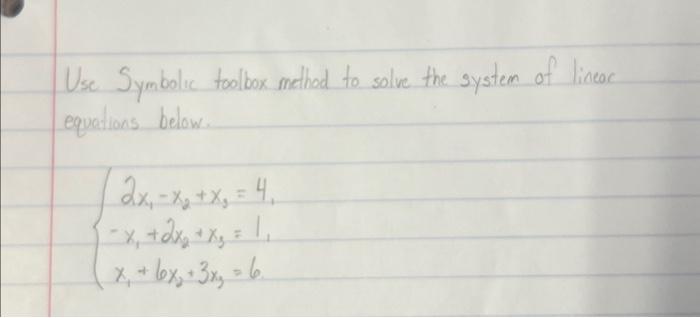 Use Symbolic toolbox method to solve the system of linear
equations below.
2x₁ - x₂ + x₃ = 4,
-x₁ + 2x₂ + x₃ = 1,
x₁ + 6x₂ + 3x₃ = 6.